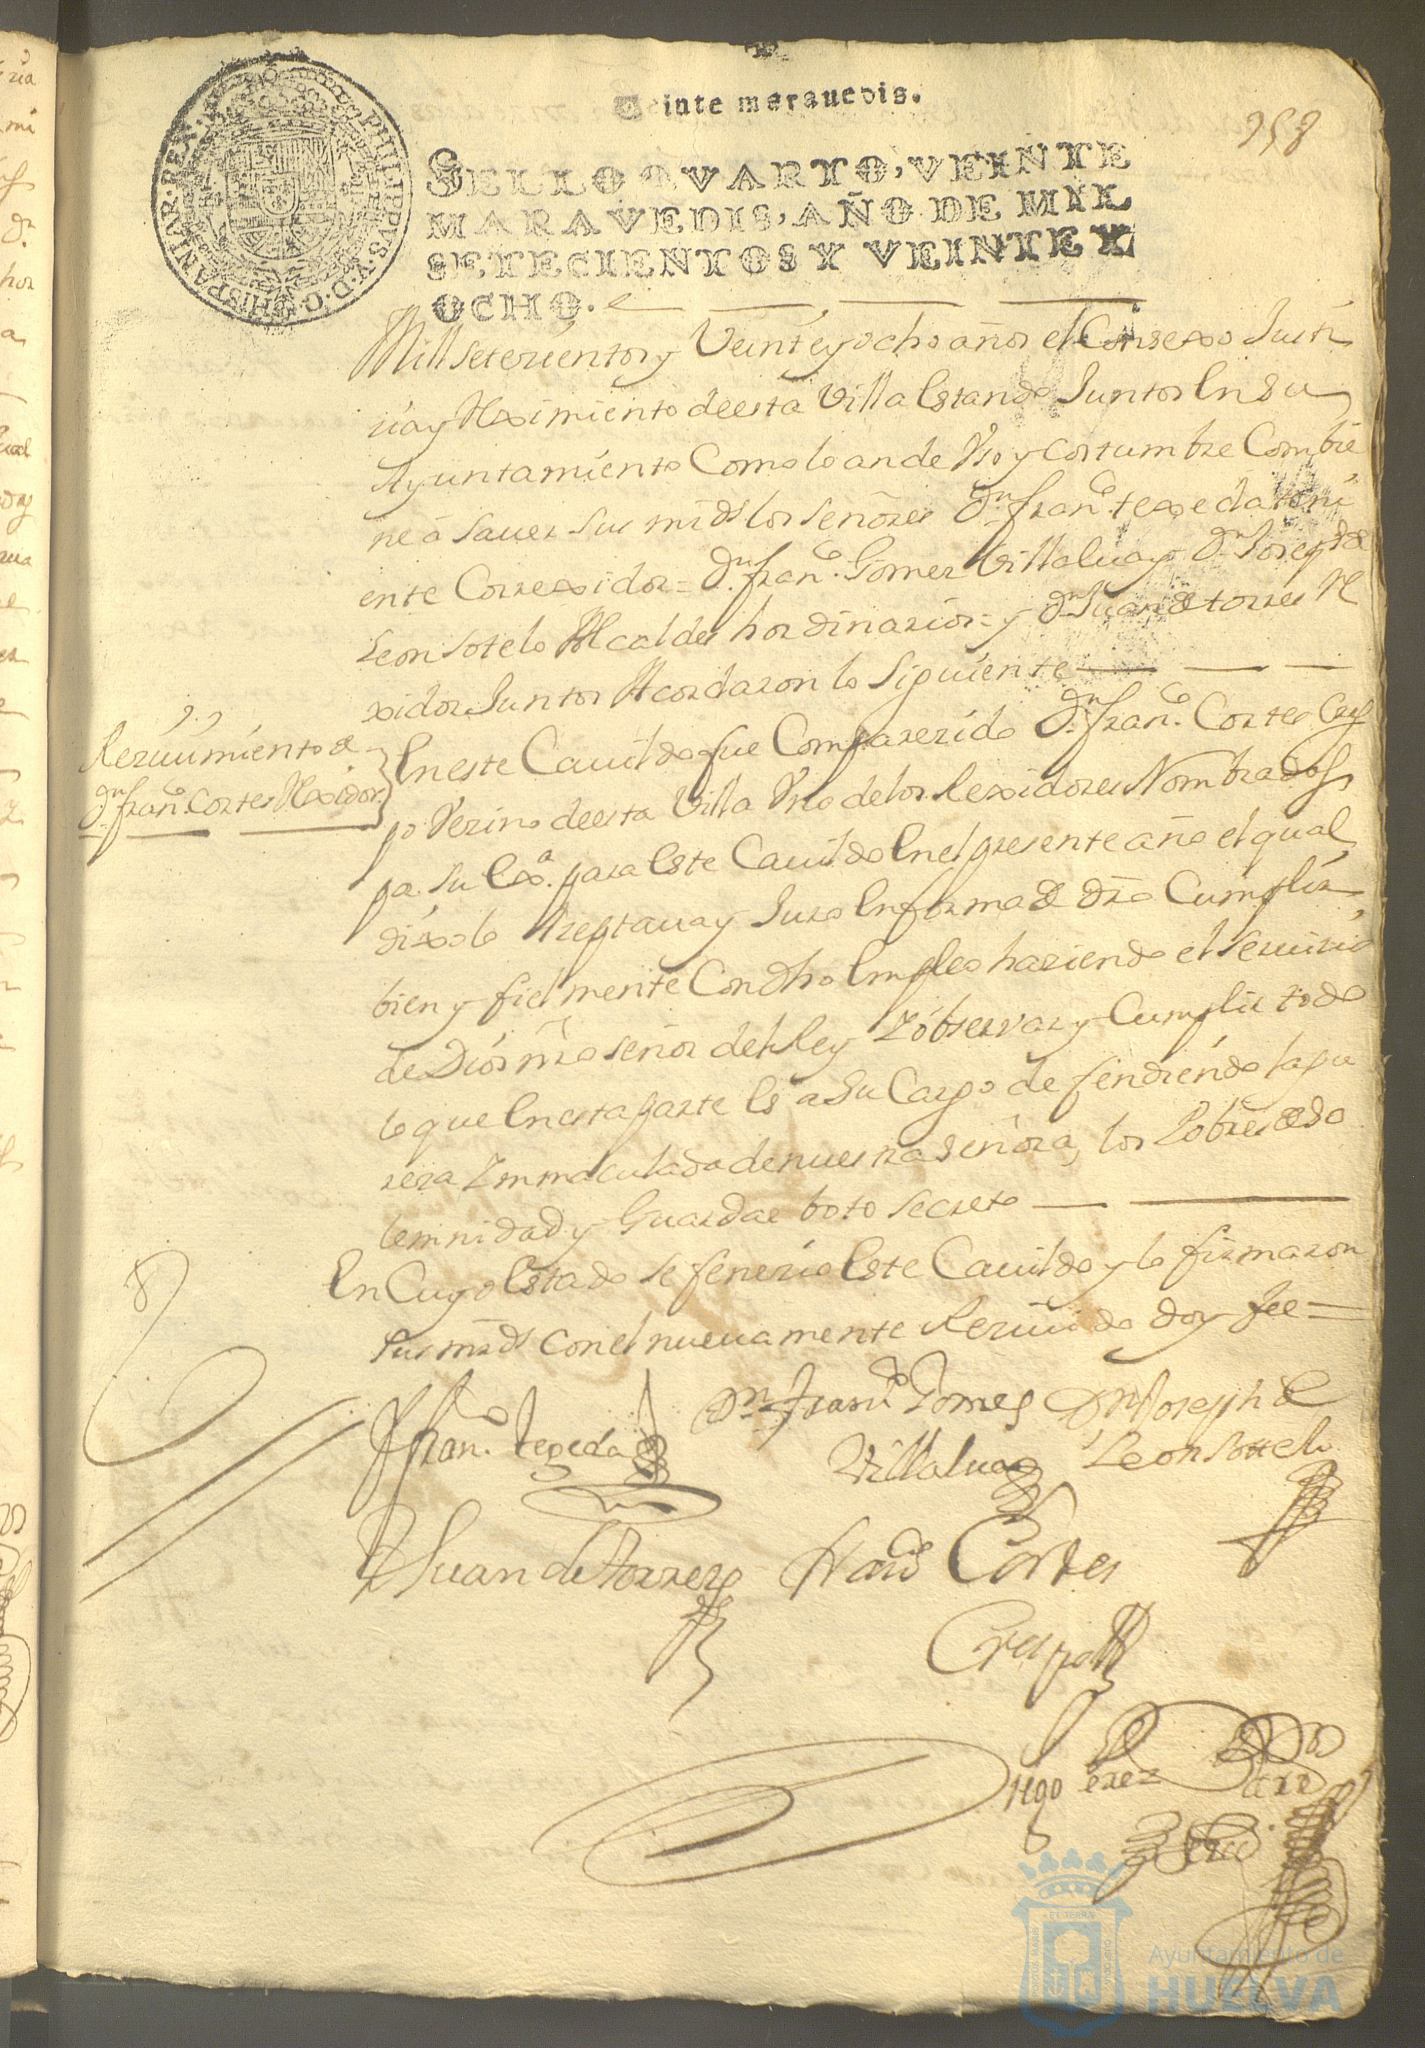 Veinte marauedis.
258
HISPANIAR. REX. PHILIPPVS. V. D. G.
SELLO QVARTO, VEINTE
MARAVEDIS, AÑO DE MIL
SETECIENTOS Y VEINTE Y
OCHO.
Mill setezientos y Veinte y ocho años el Consexo Justi
zia y Reximiento deesta Villa Estando Juntos En Su
Ayuntamiento Como lo an de Vso y costumbre Combie
ne á Saver sus mrds los señores Dn. franco. texeda teni
ente Correxidor = Dn. franco. Gomez Villalua y Dn Joseph de
Leon Sotelo Alcaldes hordinarios = y Dn Juan de torres Re
xidor Juntos Acordaron lo Siguiente
Reziuimiento de
Dn. franco Cortes Rexidor
En este Cauildo fue Comparezido Dn. franco. Cortes Cres
po Vezino deesta Villa Vno de los Rexidores Nombrados
pr. Su Exa. para Este Cauildo En el presente año el qual
dixo lo Azeptaua y Juro En forma de dro Cumplir
bien y fielmente Con dho Empleo haziendo el seruizio
de Dios nro señor del Rey Y observar y Cumplir todo
lo que En esta parte Es a Su Cargo defendiendo la pu
reza Ynmaculada de nuestra señora, los Pobres de So
lemnidad y Guardar boto secreto
En Cuyo Estado se fenezio Este Cauildo y lo firmaron
sus mrds con el nueuamente Reziuido doy fee =
Franco. Texeda
Dn. Franco Gomes
Villalua
Dn Joseph de
Leon Sottelo
Juan de Torres
Franco Cortes
Crespo
Diego Perez
Ayuntamiento de
HUELVA